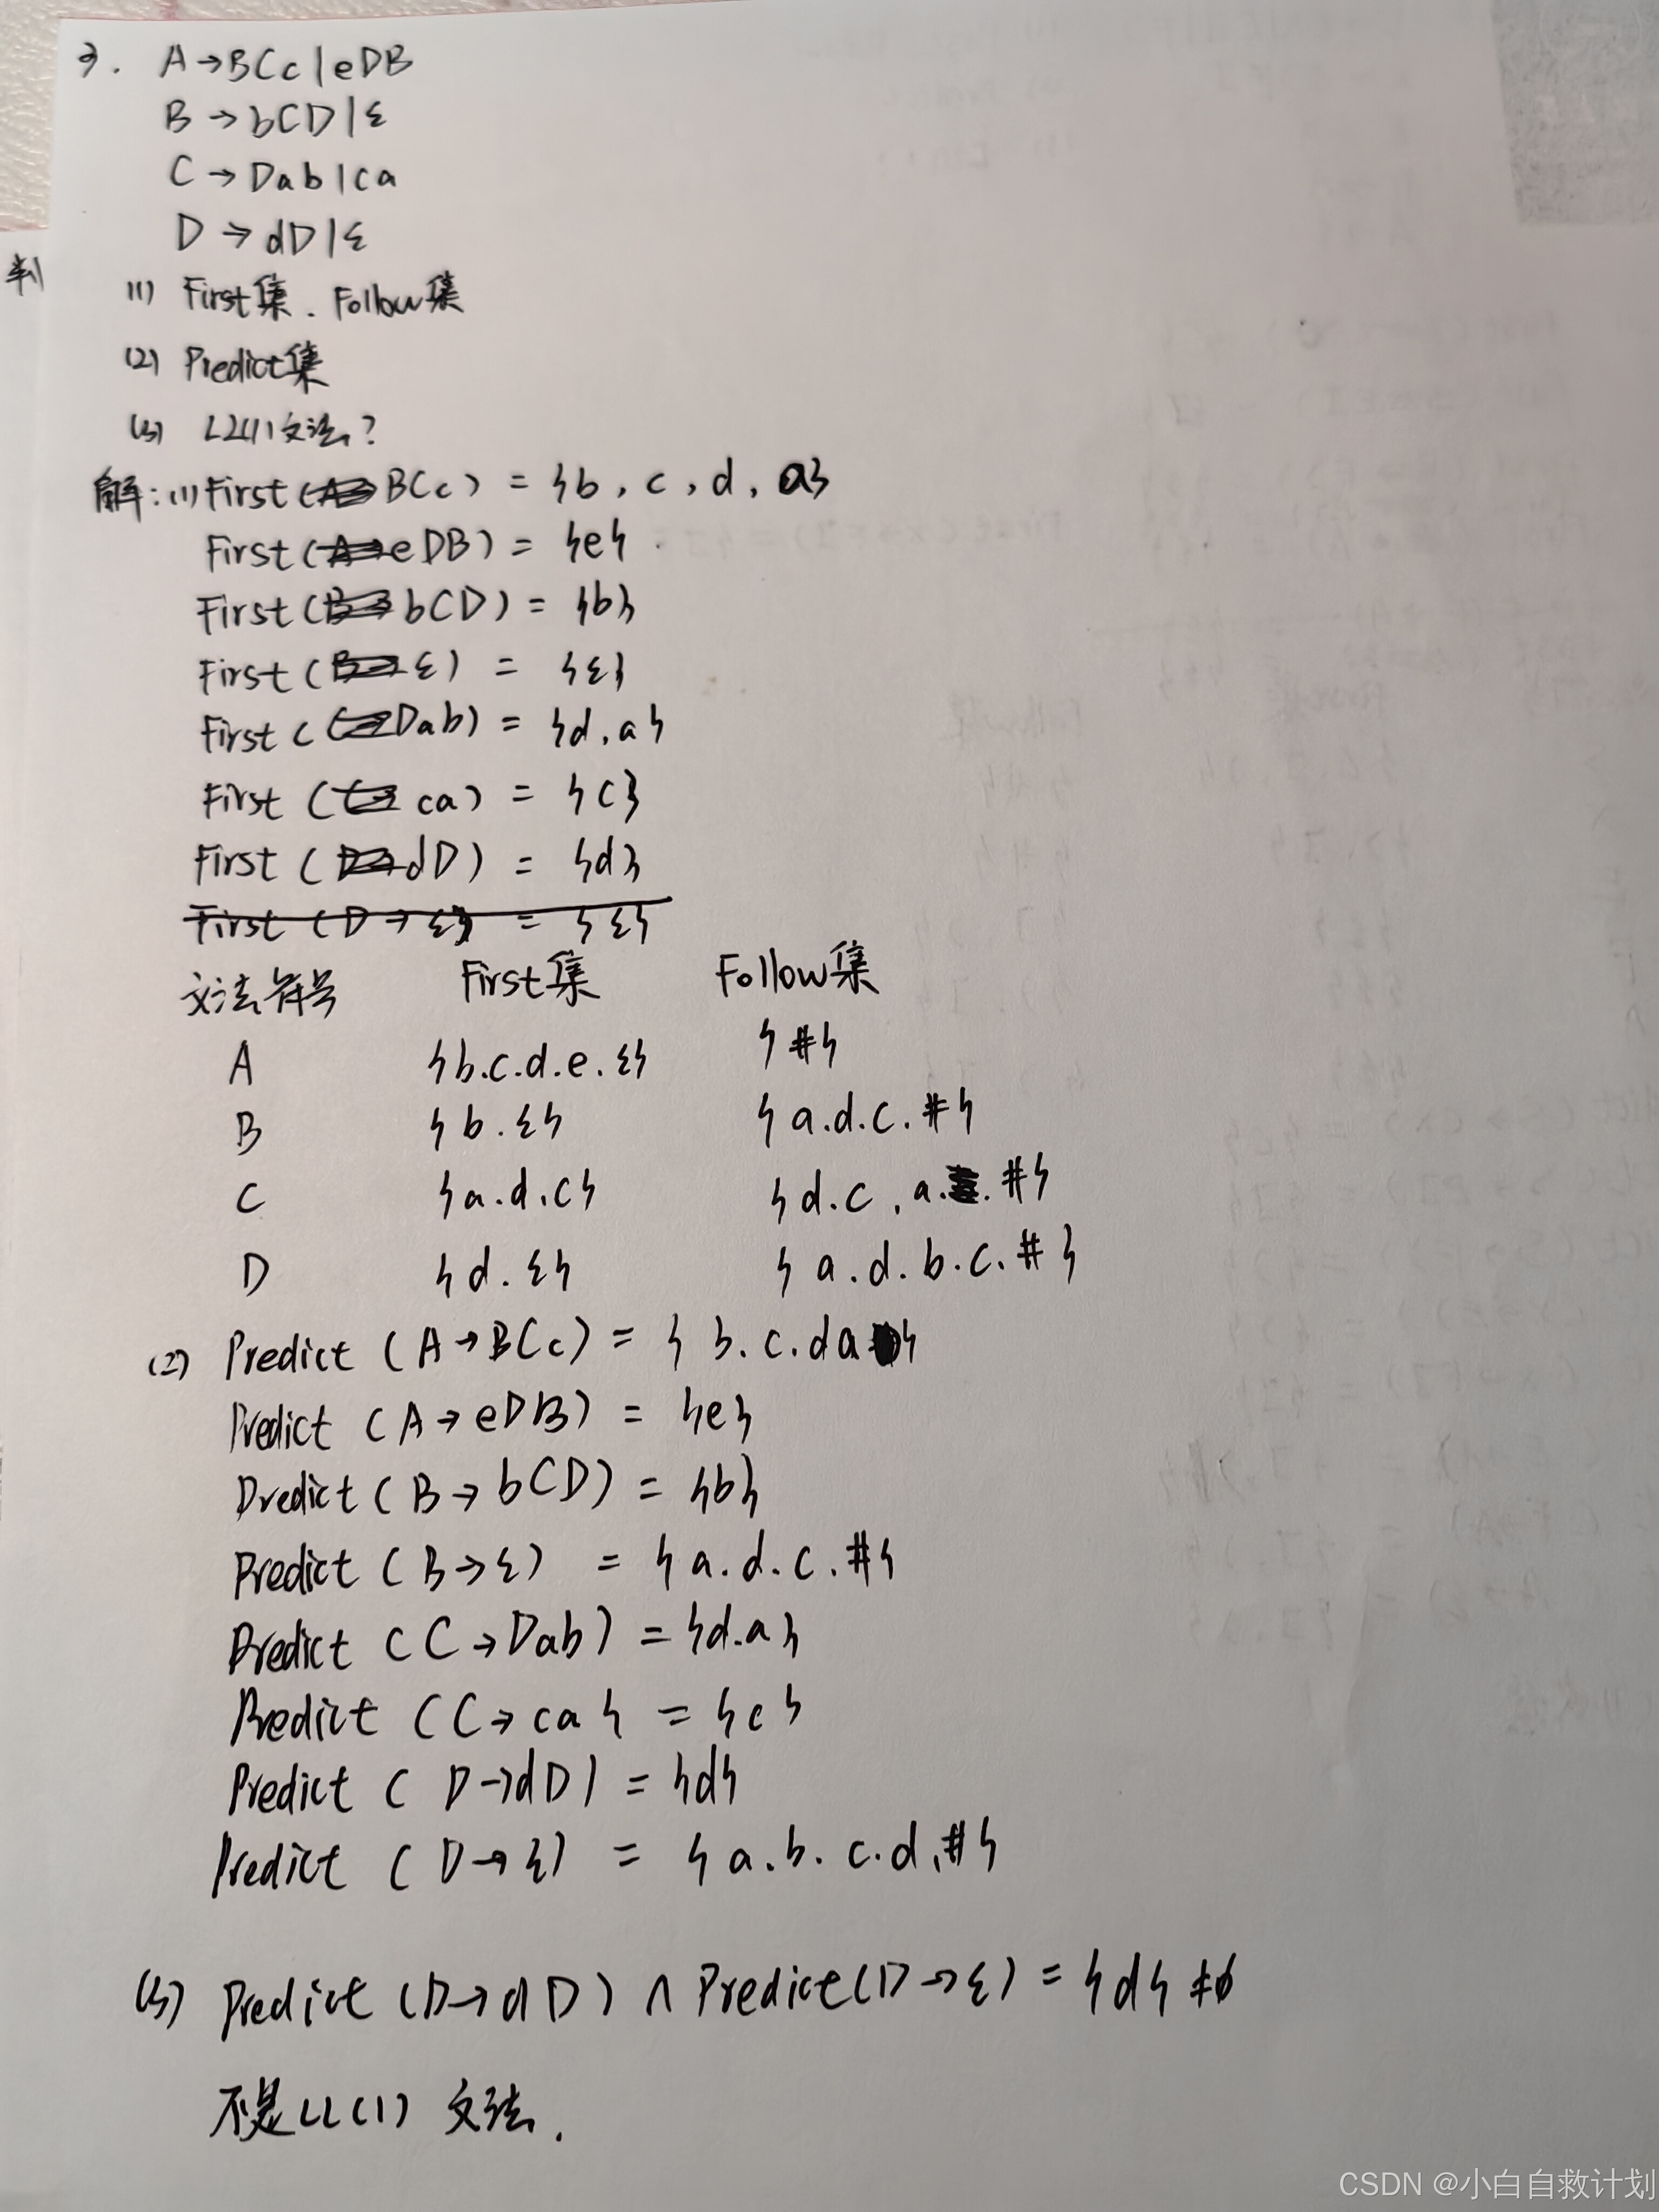 3. A→BCc|eDB
B→bCD|ε
C→Dab|ca
D→dD|ε
判
(1) First集. Follow集
(2) Predict集
(3) LL(1)文法?
解:(1) First(BCc) = {b, c, d, a}
First(eDB) = {e}
First(bCD) = {b}
First(ε) = {ε}
First(Dab) = {d.a}
First(ca) = {c}
First(dD) = {d}
First(D→ε) = {ε}
文法符号 First集 Follow集
A {b.c.d.e.ε} {#}
B {b.ε} {a.d.c.#}
C {a.d.c} {d.c,a.#}
D {d.ε} {a.d.b.c.#}
(2) Predict (A→BCc) = {b.c.da}
Predict (A→eDB) = {e}
Predict (B→bCD) = {b}
Predict (B→ε) = {a.d.c.#}
Predict (C→Dab) = {d.a}
Predict (C→ca} = {c}
Predict (D→dD) = {d}
Predict (D→ε) = {a.b.c.d.#}
(3) Predict (D→dD) ∩ Predict(D→ε) = {d} ≠∅
不是LL(1) 文法.
CSDN @小白自救计划